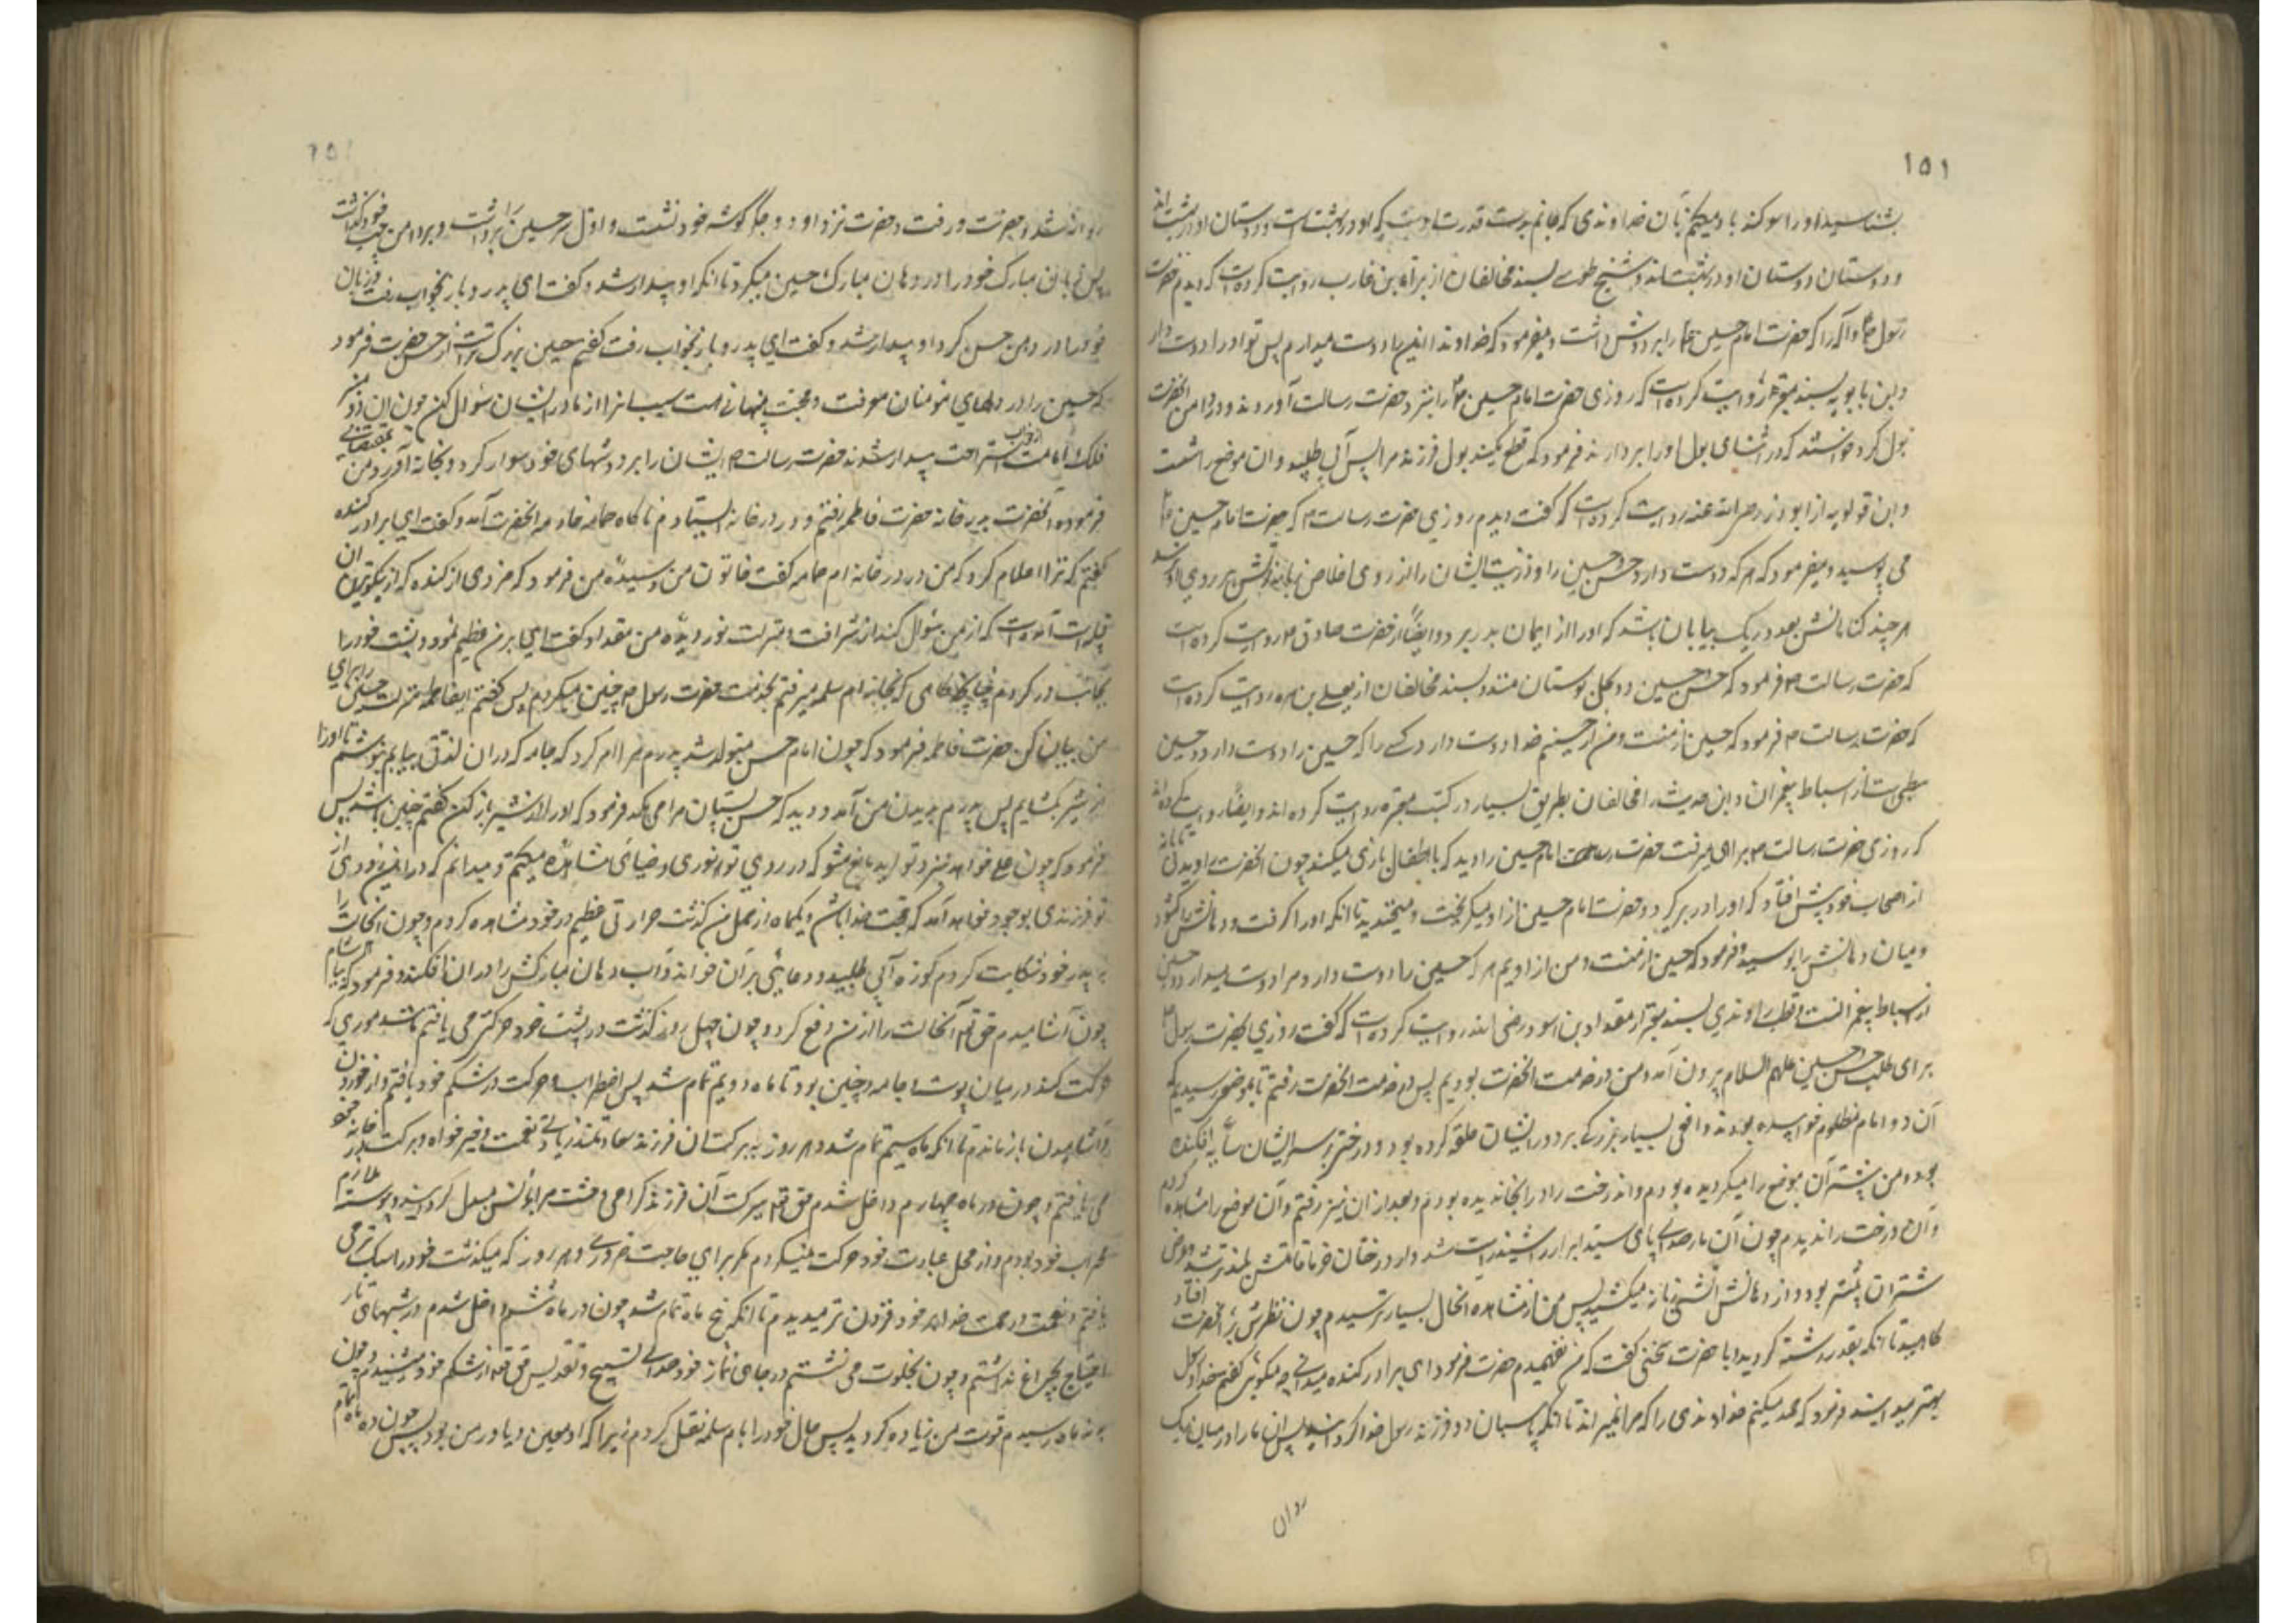 ١٥١
بشناسید او را سوکند یاد میکنم بآن خداوندی که جانم بدست قدرت اوست که او در بهشت است و دوستان او در بهشت اند
و دوستان دوستان او در بهشت اند و شیخ طوسی بسند مخالفان از براء بن عازب روایت کرده است که دیدم حضرت
رسول را که حضرت امام حسین را بر دوش داشت و میفرمود که خداوندا من این را دوست میدارم پس تو او را دوست دار
و ابن بابویه بسند معتبر روایت کرده است که روزی حضرت امام حسین را بنزد حضرت رسالت آوردند و در دامن آنحضرت
بول کرد خواستند که در اثنای بول او را بردارند فرمود که قطع مکنید بول فرزند مرا پس آب طلبید و آن موضع را شست
و ابن قولویه از ابوذر رضی الله عنه روایت کرده است که گفت دیدم روزی حضرت رسالت که حضرت امام حسین
می بوسید و میفرمود که هر که دوست دارد حسن و حسین را و ذریت ایشان را از روی اخلاص آتش بر روی او
هر چند کناهانش بعدد ریک بیابان باشد که او را از ایمان بدر برد و ایضا از حضرت صادق روایت کرده است
که حضرت رسالت فرمود که حسن و حسین دو کل بوستان منند و بسند مخالفان از یعلی بن مره روایت کرده است
که حضرت رسالت فرمود که حسین از منست و من از حسینم خدا دوست دارد کسی را که حسین را دوست دارد و حسین
سبطی است از اسباط پیغمبران و این حدیث را مخالفان بطریق بسیار در کتب معتبره روایت کرده اند و ایضا روایت کرده اند
که روزی حضرت رسالت براهی میرفت حضرت امام حسین را دید که با اطفال بازی میکند چون آنحضرت او را دید
از اصحاب خود پیش افتاد که او را در بر گیرد و حضرت امام حسین از او میکریخت و میخندید تا آنکه او را گرفت و دهانش را کشود
و میان دهانش را بوسید و فرمود که حسین از منست و من از اویم هر که حسین را دوست دارد مرا دوست میدارد و حسین
از اسباط پیغمبرانست و قطب راوندی بسند معتبر از مقداد بن اسود رضی الله روایت کرده است که گفت روزی حضرت رسول
برای طلب حسن و حسین علیهم السلام بیرون آمد و من در خدمت آنحضرت بودم پس در خدمت آنحضرت رفتم تا بموضعی رسیدیم که
آن دو امام مظلوم خوابیده بودند و افعی بسیار بزرگی بر دور ایشان حلقه کرده بود و درختی بر سر ایشان سایه افکنده
بود و من پیشتر آن موضع را میکردیده بودم و آن درخت را در آنجا ندیده بودم و بعد از آن نیز رفتم و آن موضع را مشاهده کردم
و آن درخت را ندیدم چون آن مار صدای پای سید ابرار را شنید راست شد و از درختان خرما قامتش بلندتر شد و عرض
شتران بیشتر بود و از دهانش آتش زبانه میکشید پس من از مشاهده آنحال بسیار ترسیدم چون نظرش بر آنحضرت افتاد
کاهید تا آنکه بقدر رشته گردید و با حضرت سخنی گفت که من نفهمیدم حضرت فرمود ای برادر کنده میدانی چه میکوید گفتم خدا و رسول
بهتر میدانند فرمود که حمد میکنم خداوندی را که مرا نمیراند تا آنکه پاسبان دو فرزند رسول خدا گردانید پس آن مار در میان ریک
روان
روانه شد و حضرت نزد او دو جگر گوشه خود نشست و اول سر حسین برداشت و بر دامن خود گذاشت
پس زبان مبارک خود را در دهان مبارک حسین میکرد تا آنکه او بیدار شد و گفت ای پدر و باز بخواب رفت و زبان
خود را در دهن حسن کرد او بیدار شد و گفت ای پدر و باز بخواب رفت گفتم حسین بزرک تر است از حسن حضرت فرمود
که حسین را در دلهای مؤمنان معرفت و محبت پنهانی هست سبب آنرا از مادر ایشان سؤال کن چون این دو
فلک امامت از خواب استراحت بیدار شدند حضرت رسالت ایشان را بر دوشهای خود سوار کرد و بخانه آورد و من
فرموده آنحضرت بدر خانه حضرت فاطمه رفتم و در در خانه ایستادم ناگاه حمامه خادمه آنحضرت آمد و گفت ای برادر کنده
گفتم که ترا اعلام کرد که من در در خانه ام حمامه گفت خاتون من و سیده من فرمود که مردی از کنده که از نیکوترین آن
قبیله است آمده است که از من سؤال کند از شرافت و منزلت نور دیده من مقداد گفت این بر من عظیم نمود و پشت خود را
بجانب در کردم چنانچه هرگاهی که بخانه ام سلمه میرفتم بخدمت حضرت رسول چنین میکردم پس گفتم ای فاطمه منزلت حسین را برای
من بیان کن حضرت فاطمه فرمود که چون امام حسن متولد شد پدرم مرا امر کرد که جامه که در آن لذتی بیابم نپوشم تا او را
از شیر بکشایم پس پدرم بدیدن من آمد و دید که حسن پستان مرا می مکد فرمود که او را از شیر باز کن گفتم چنین باشد پس
فرمود که چون علی خواهد نزد تو آید مانع مشو که در روی تو نوری و ضیائی مشاهده میکنم و میدانم که در این زودی از
تو فرزندی بوجود خواهد آمد که حجت خدا باشد و یکماه از حمل من گذشت حرارتی عظیم در خود مشاهده کردم و چون آنحالت را
به پدر خود شکایت کردم کوزه آبی طلبید و دعائی بر آن خواند و آب دهان مبارکش را در آن افکند و فرمود که بیاشام
چون آشامیدم حق تعالی آنحالت را از من رفع کرد و چون چهل روز گذشت در پشت خود حرکتی می یافتم مانند موری که
حرکت کند در میان پوست و جامه و چنین بود تا ماه دویم تمام شد پس اضطراب و حرکت در شکم خود یافتم و از خوردن
و آشامیدن باز ماندم تا آنکه ماه سیم تمام شد و هر روز به برکت آن فرزند سعادتمند زیادتی نعمت و خیر خواه و برکت در خانه خود
می یافتم و چون در ماه چهارم داخل شدم حق تعالی ببرکت آن فرزند گرامی وحشت مرا بانس مبدل گردانید و پیوسته ملازم
محراب خود بودم و از محل عبادت خود حرکت نمیکردم مگر برای حاجت ضروری و هر روز که میگذشت خود را سبک تر می
یافتم و نعمت و رحمت خدا بر خود فزون تر میدیدم تا آنکه پنج ماه تمام شد چون در ماه ششم داخل شدم در شبهای تار
احتیاج بچراغ نداشتم و چون بخلوت می نشستم در جای نماز خود صدای تسبیح و تقدیس حق تعالی از شکم خود میشنیدم و چون
به نه ماه رسیدم قوت من زیاده گردید پس حال خود را بام سلمه نقل کردم زیرا که او معین و یاور من بود پس چون ده ماه تمام